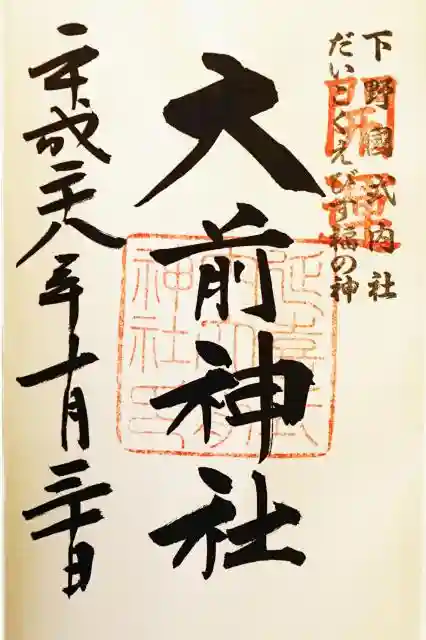 下野國式内社
だい古くえびす福の神
大前神社
平成二十八年十月三十日